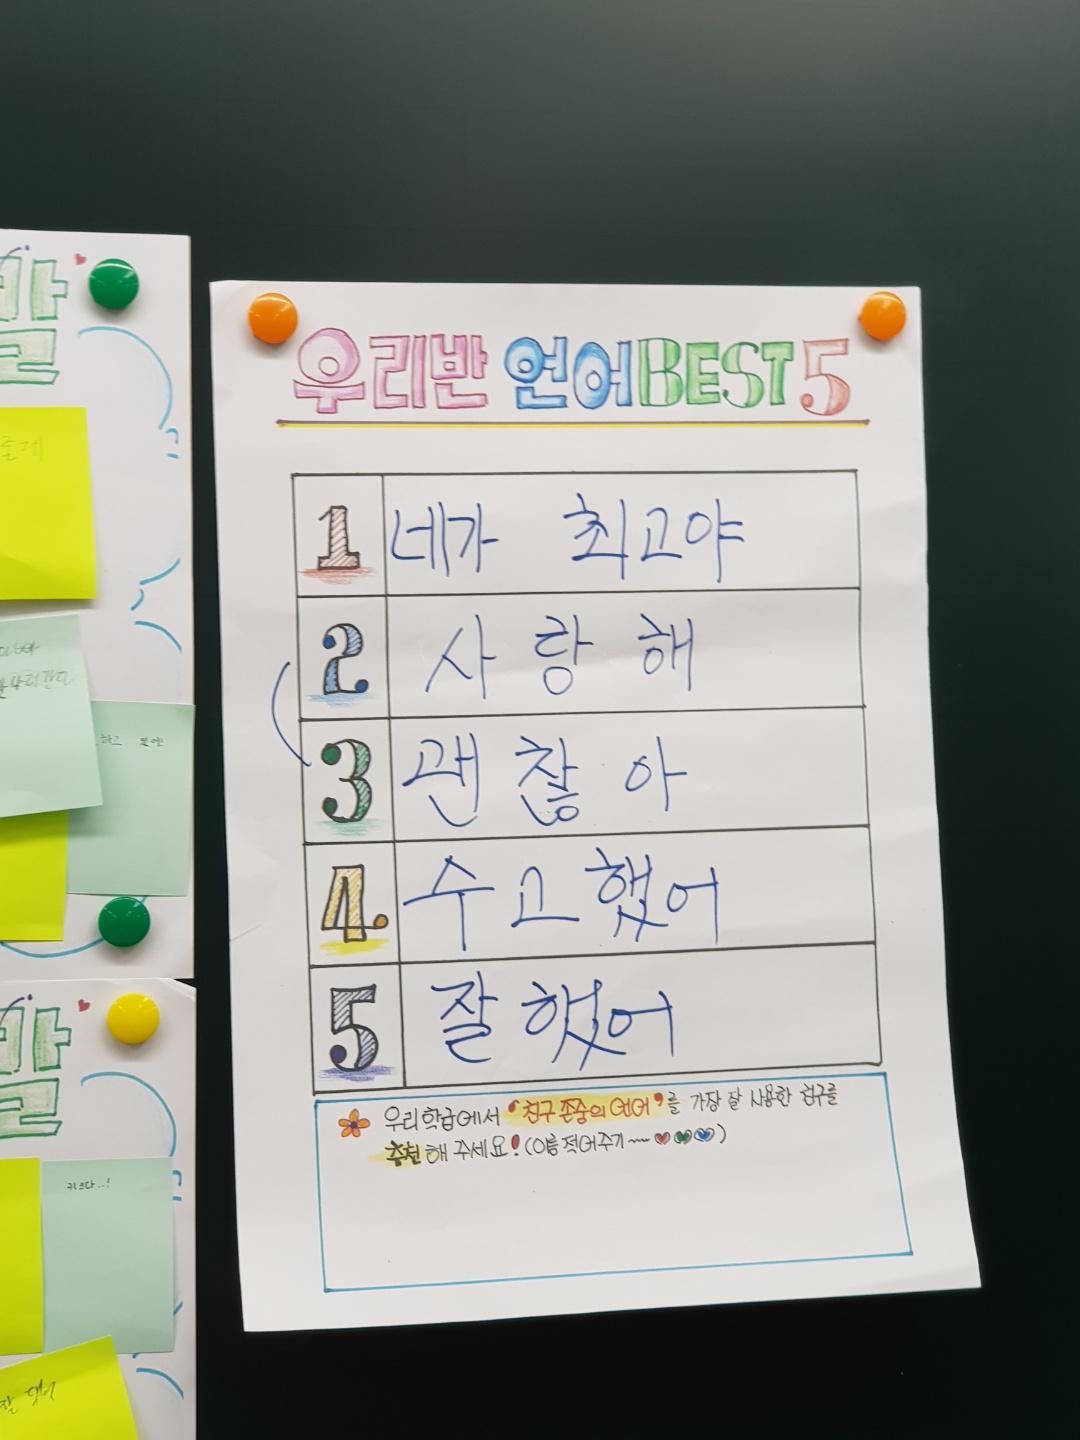 우리반 언어 BEST 5
1 네가 최고야
2 사랑해
3 괜찮아
4 수고했어
5 잘했어
우리학급에서 '친구 존중의 언어'를 가장 잘 사용한 친구를
추천해 주세요! (이름 적어주기~~)
말
하고
키크다..!